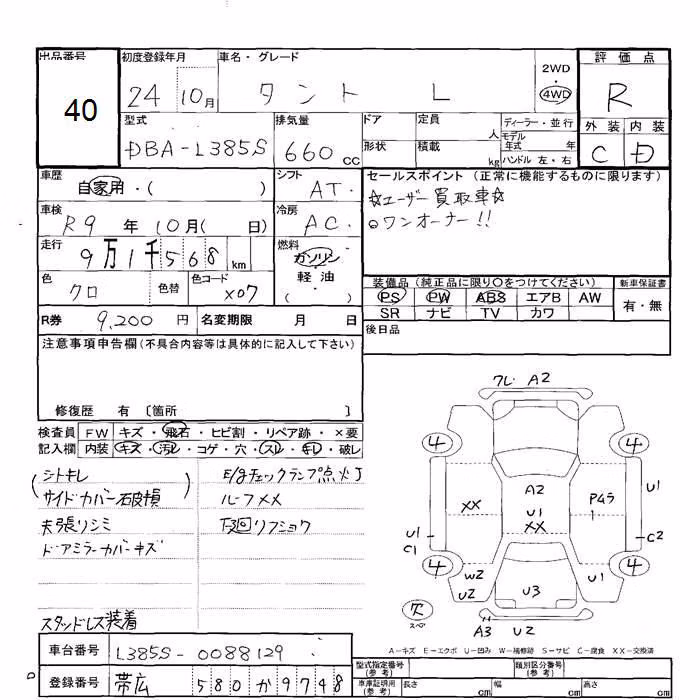 出品番号 初度登録年月 車名・グレード 評価点
40 24 10月 タント L 2WD・4WD R
型式 排気量 ドア 定員 人 ディーラー・並行 外装 内装
DBA-L385S 660cc 形状 積載 kg モデル年式 年 ハンドル 左・右 C D
車歴 自家用・( ) シフト AT・ セールスポイント (正常に機能するものに限ります)
☆ユーザー買取車☆
車検 R9年10月( 日) 冷房 AC・ ○ワンオーナー!!
走行 9万1千568km 燃料 ガソリン・軽油・( )
色 クロ 色替 色コード X07 装備品(純正品に限り○をつけてください) 新車保証書
PS PW ABS エアB AW 有・無
SR ナビ TV カワ
R券 9,200円 名変期限 月 日 後日品
注意事項申告欄(不具合内容等は具体的に記入して下さい)
修復歴 有 〔箇所 〕
検査員 FW キズ・飛石・ヒビ割・リペア跡・×要
記入欄 内装 キズ・汚レ・コゲ・穴・スレ・キレ・破レ
シトキレ E/gチェックランプ点灯
(サイドカバー破損) ルーフメメ
天張リシミ 下廻リフショク
ドアミラーカバーキズ
スタッドレス装着
フレ A2
4 4
XX A2 U1 XX P4ラ 1 U1
U1 C1 C2
4 4
W2 U2 U3 U1
欠 スペア A3 U2
A-キズ E-エクボ U-凹み W-補修跡 S-サビ C-腐食 XX-交換済
車台番号 L385S-0088129 型式指定番号(参考) 類別区分番号(参考)
登録番号 帯広 580か9748 車庫証明用(参考) 長さ cm 幅 cm 高さ cm